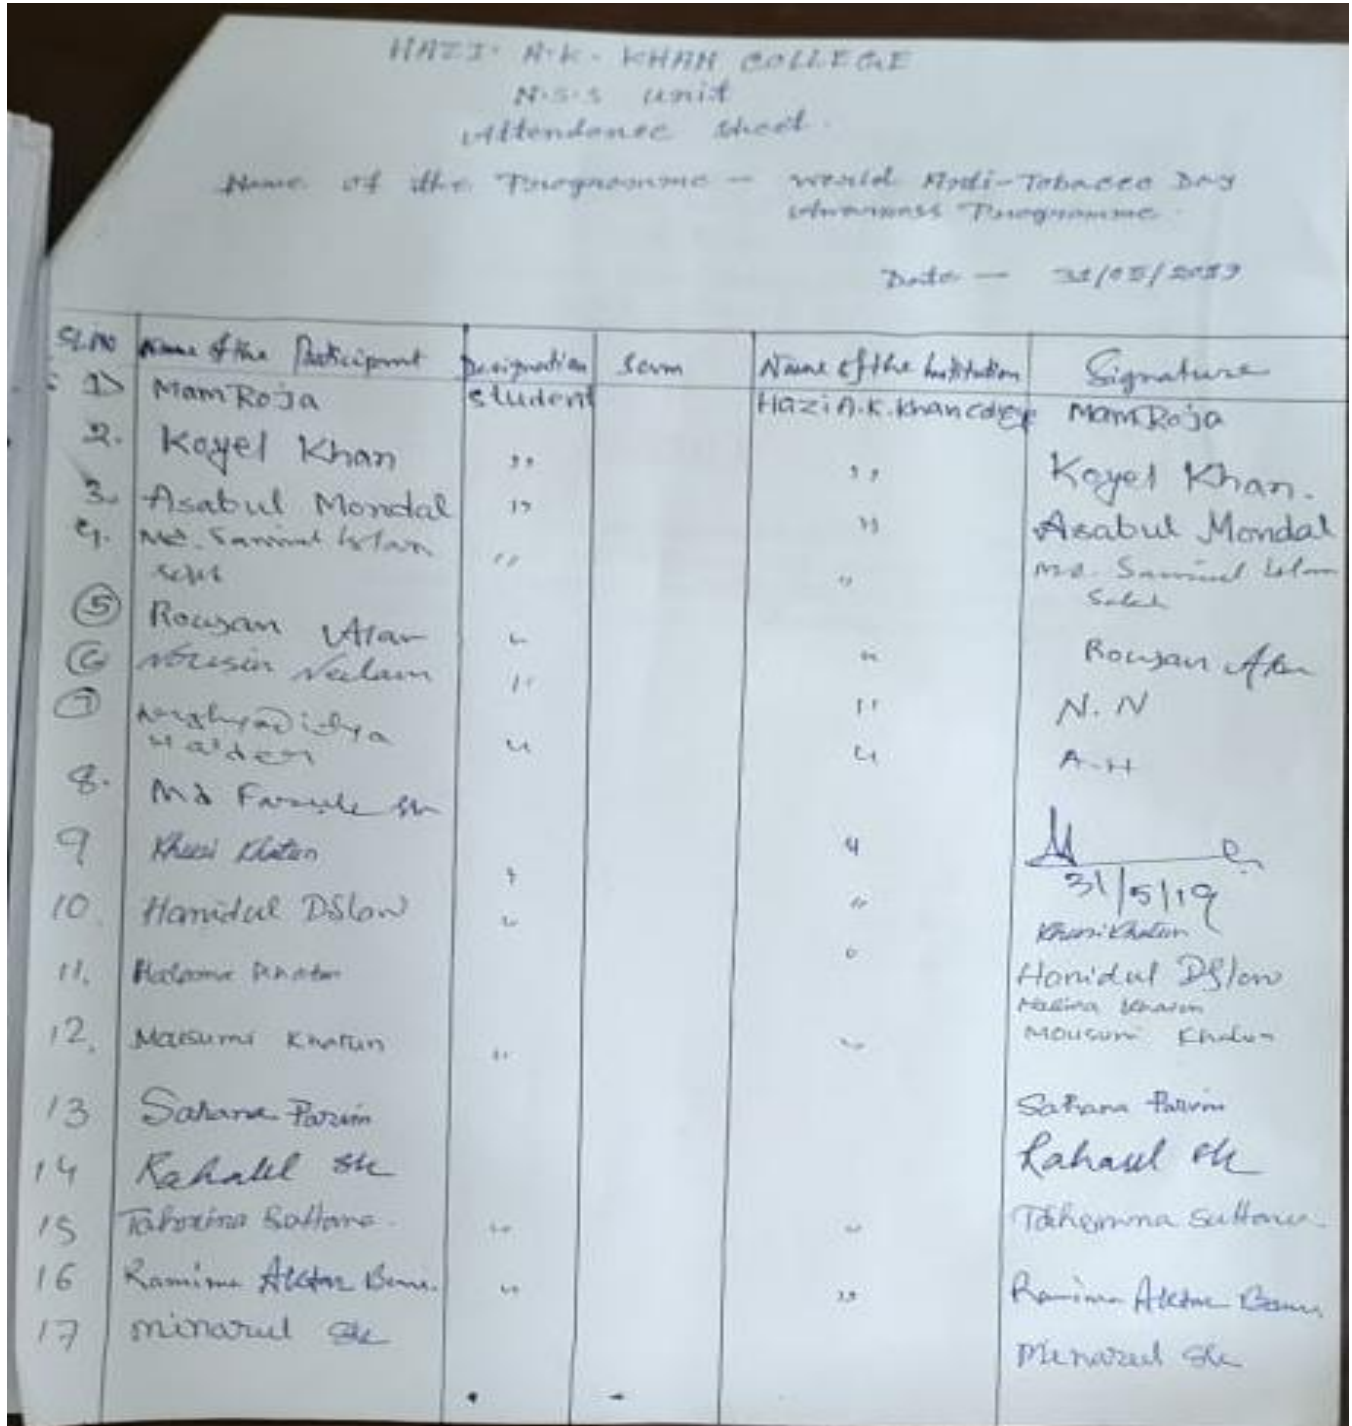 HAZI. A.K. KHAN COLLEGE
N.S.S unit
Attendance Sheet.
Name of the Programme — World Anti-Tobacco Day
Awarness Programme.
Date — 31/05/2019
SL.NO Name of the Participant Designation Name of the Institution Signature
1) Mam Roja Student Hazi A.K. Khan College Mam Roja
2. Koyel Khan ,, ,, Koyel Khan.
3. Asabul Mondal ,, ,, Asabul Mondal
4. Md. Samiul Islam " " Md. Samiul Islam
5 Rousan " " Rousan
6 Nousin Neelam " " N. N
7 Arghyadidya " " A-H
Halder
8. Md Sk
31/5/19
9 Khusi Khatun " " Khusi Khatun
10. Hamidul Islam " " Hamidul Islam
11. Khatun " Halima Khatun
12. Mousumi Khatun " " Mousumi Khatun
13 Sahana Parvin Sahana Parvin
14 Rahaul Sk Rahaul Sk
15 "  "
16 Ramima Aktar Banu. " ,, Ramima Aktar Banu
17 Minarul Sk Minarul Sk